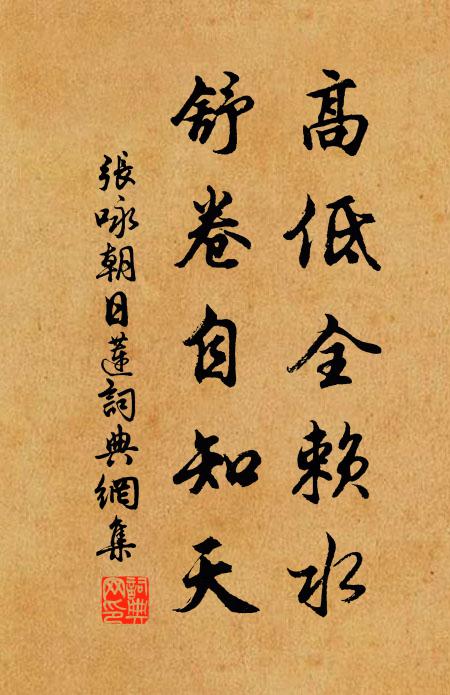 高低全赖水
舒卷自知天
張咏朝日蓮詞典網集
詞典网印